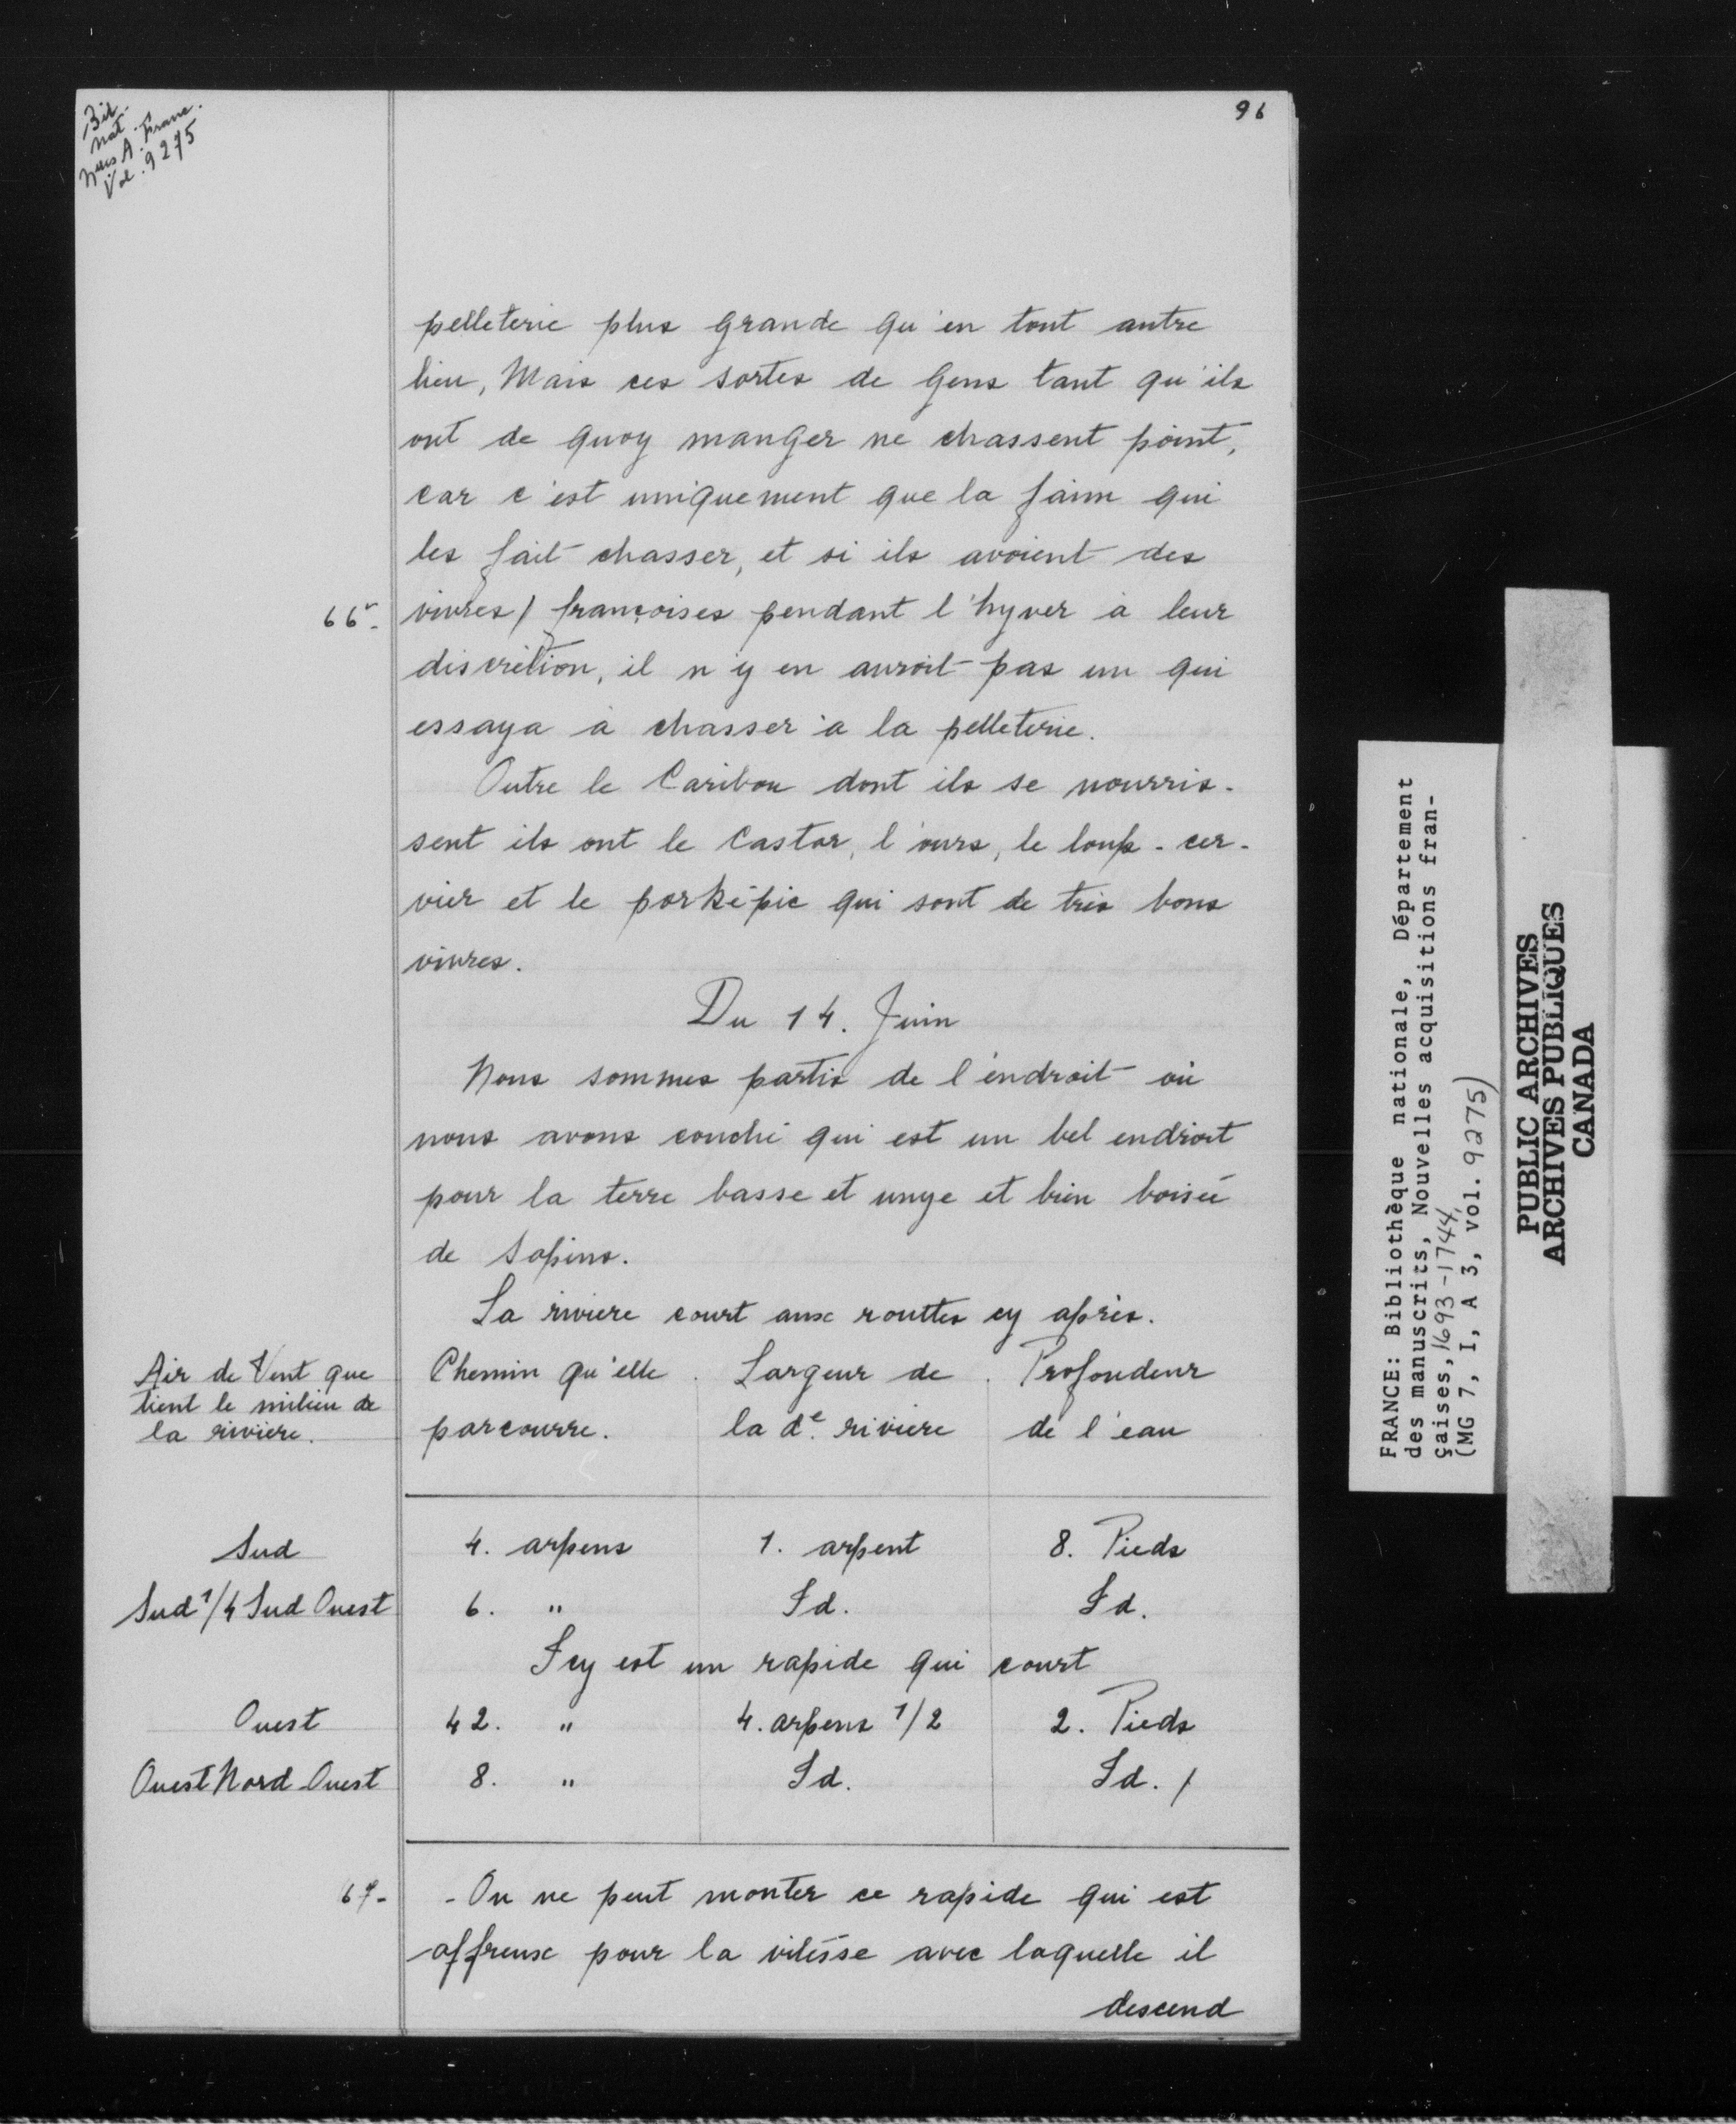 Bib.
nat.
Nlles A. Franc.
Vol. 9275
96
pelleterie plus grande qu'en tout autre
lieu, Mais ces sortes de Gens tant qu'ils
ont de quoy manger ne chassent point,
car c'est uniquement que la faim qui
les fait chasser, et si ils avoient des
66v- vivres / françoises pendant l'hyver à leur
discrétion, il n'y en auroit pas un qui
essaya à chasser à la pelleterie.
Outre le Caribou dont ils se nourris-
sent ils ont le Castor, l'ours, le loup-cer-
vier et le porképic qui sont de très bons
vivres.
Du 14. Juin
Nous sommes partis de l'endroit où
nous avons couché qui est un bel endroit
pour la terre basse et unye et bien boisée
de Sapins.
La rivière court aux routtes cy après.
Air de Vent que tient le milieu de la rivière. Chemin qu'elle parcourre. Largeur de la de. rivière Profondeur de l'eau
Sud 4. arpens 1. arpent 8. Pieds
Sud 1/4 Sud Ouest 6. " Id. Id.
Icy est un rapide qui court
Ouest 42. " 4. arpens 1/2 2. Pieds
Ouest Nord Ouest 8. " Id. Id. /
67- - On ne peut monter ce rapide qui est
affreux pour la vitesse avec laquelle il
descend
FRANCE: Bibliothèque nationale, Département
des manuscrits, Nouvelles acquisitions fran-
çaises, 1693-1744,
(MG 7, I, A 3, vol. 9275)
PUBLIC ARCHIVES
ARCHIVES PUBLIQUES
CANADA